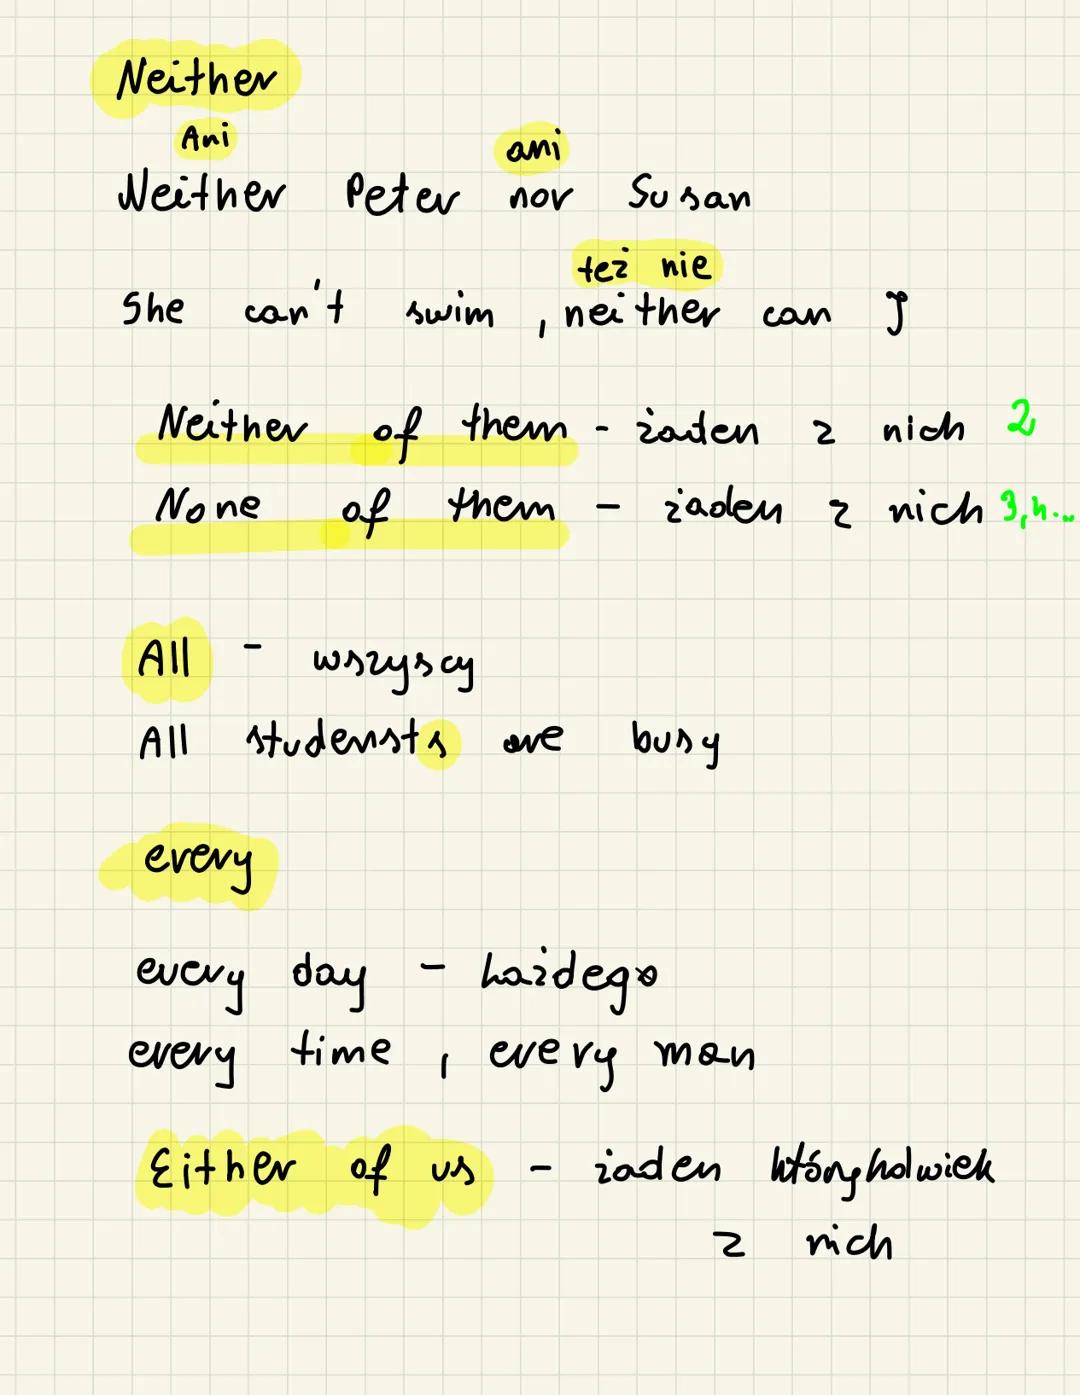 Neither
Ani ani
Neither Peter nor Susan
też nie
She can't swim, neither can I
Neither of them - żaden z nich 2
None of them - żaden z nich 3,4...
All - wszyscy
All studensts are busy
every
every day - każdego
every time, every man
Either of us - żaden którykolwiek
z nich